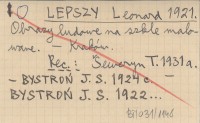 LEPSZY Leonard 1921.
Obrazy ludowe na szkle malo-
wane. – Kraków.
Rec: Seweryn T. 1931 a.
– BYSTROŃ J. S. 1924 c –
BYSTROŃ J. S. 1922...